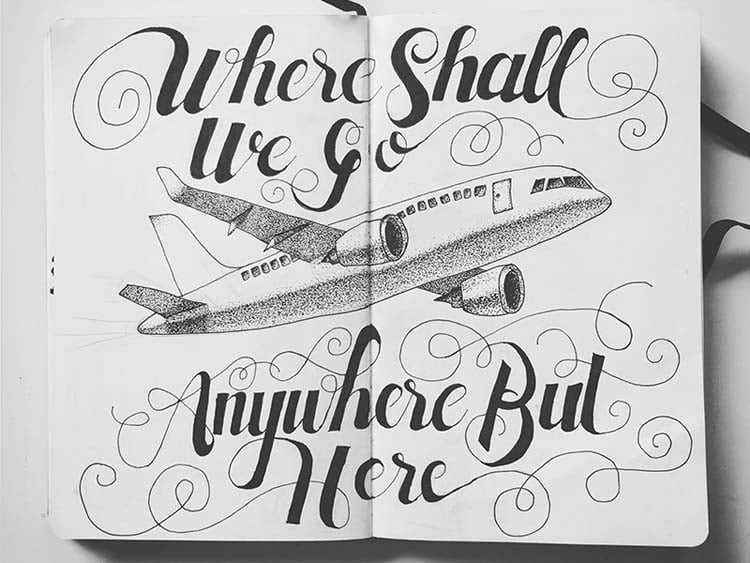 Where Shall
We Go
Anywhere But
Here